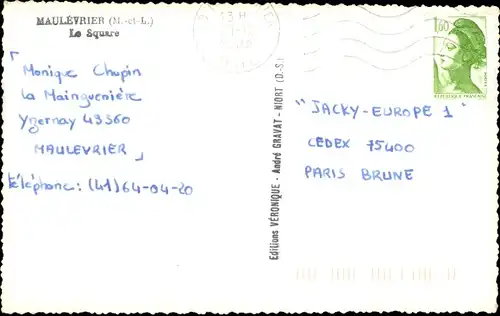 MAULÉVRIER (M.-et-L.)
Le Square
"Monique Chupin
La Mainguenière
Yzernay 49360
MAULEVRIER"
téléphone: (41)64-04-20
Editions VÉRONIQUE - André GRAVAT - NIORT (D.-S.)
1,60
REPUBLIQUE FRANCAISE
"JACKY-EUROPE 1"
CEDEX 75400
PARIS BRUNE